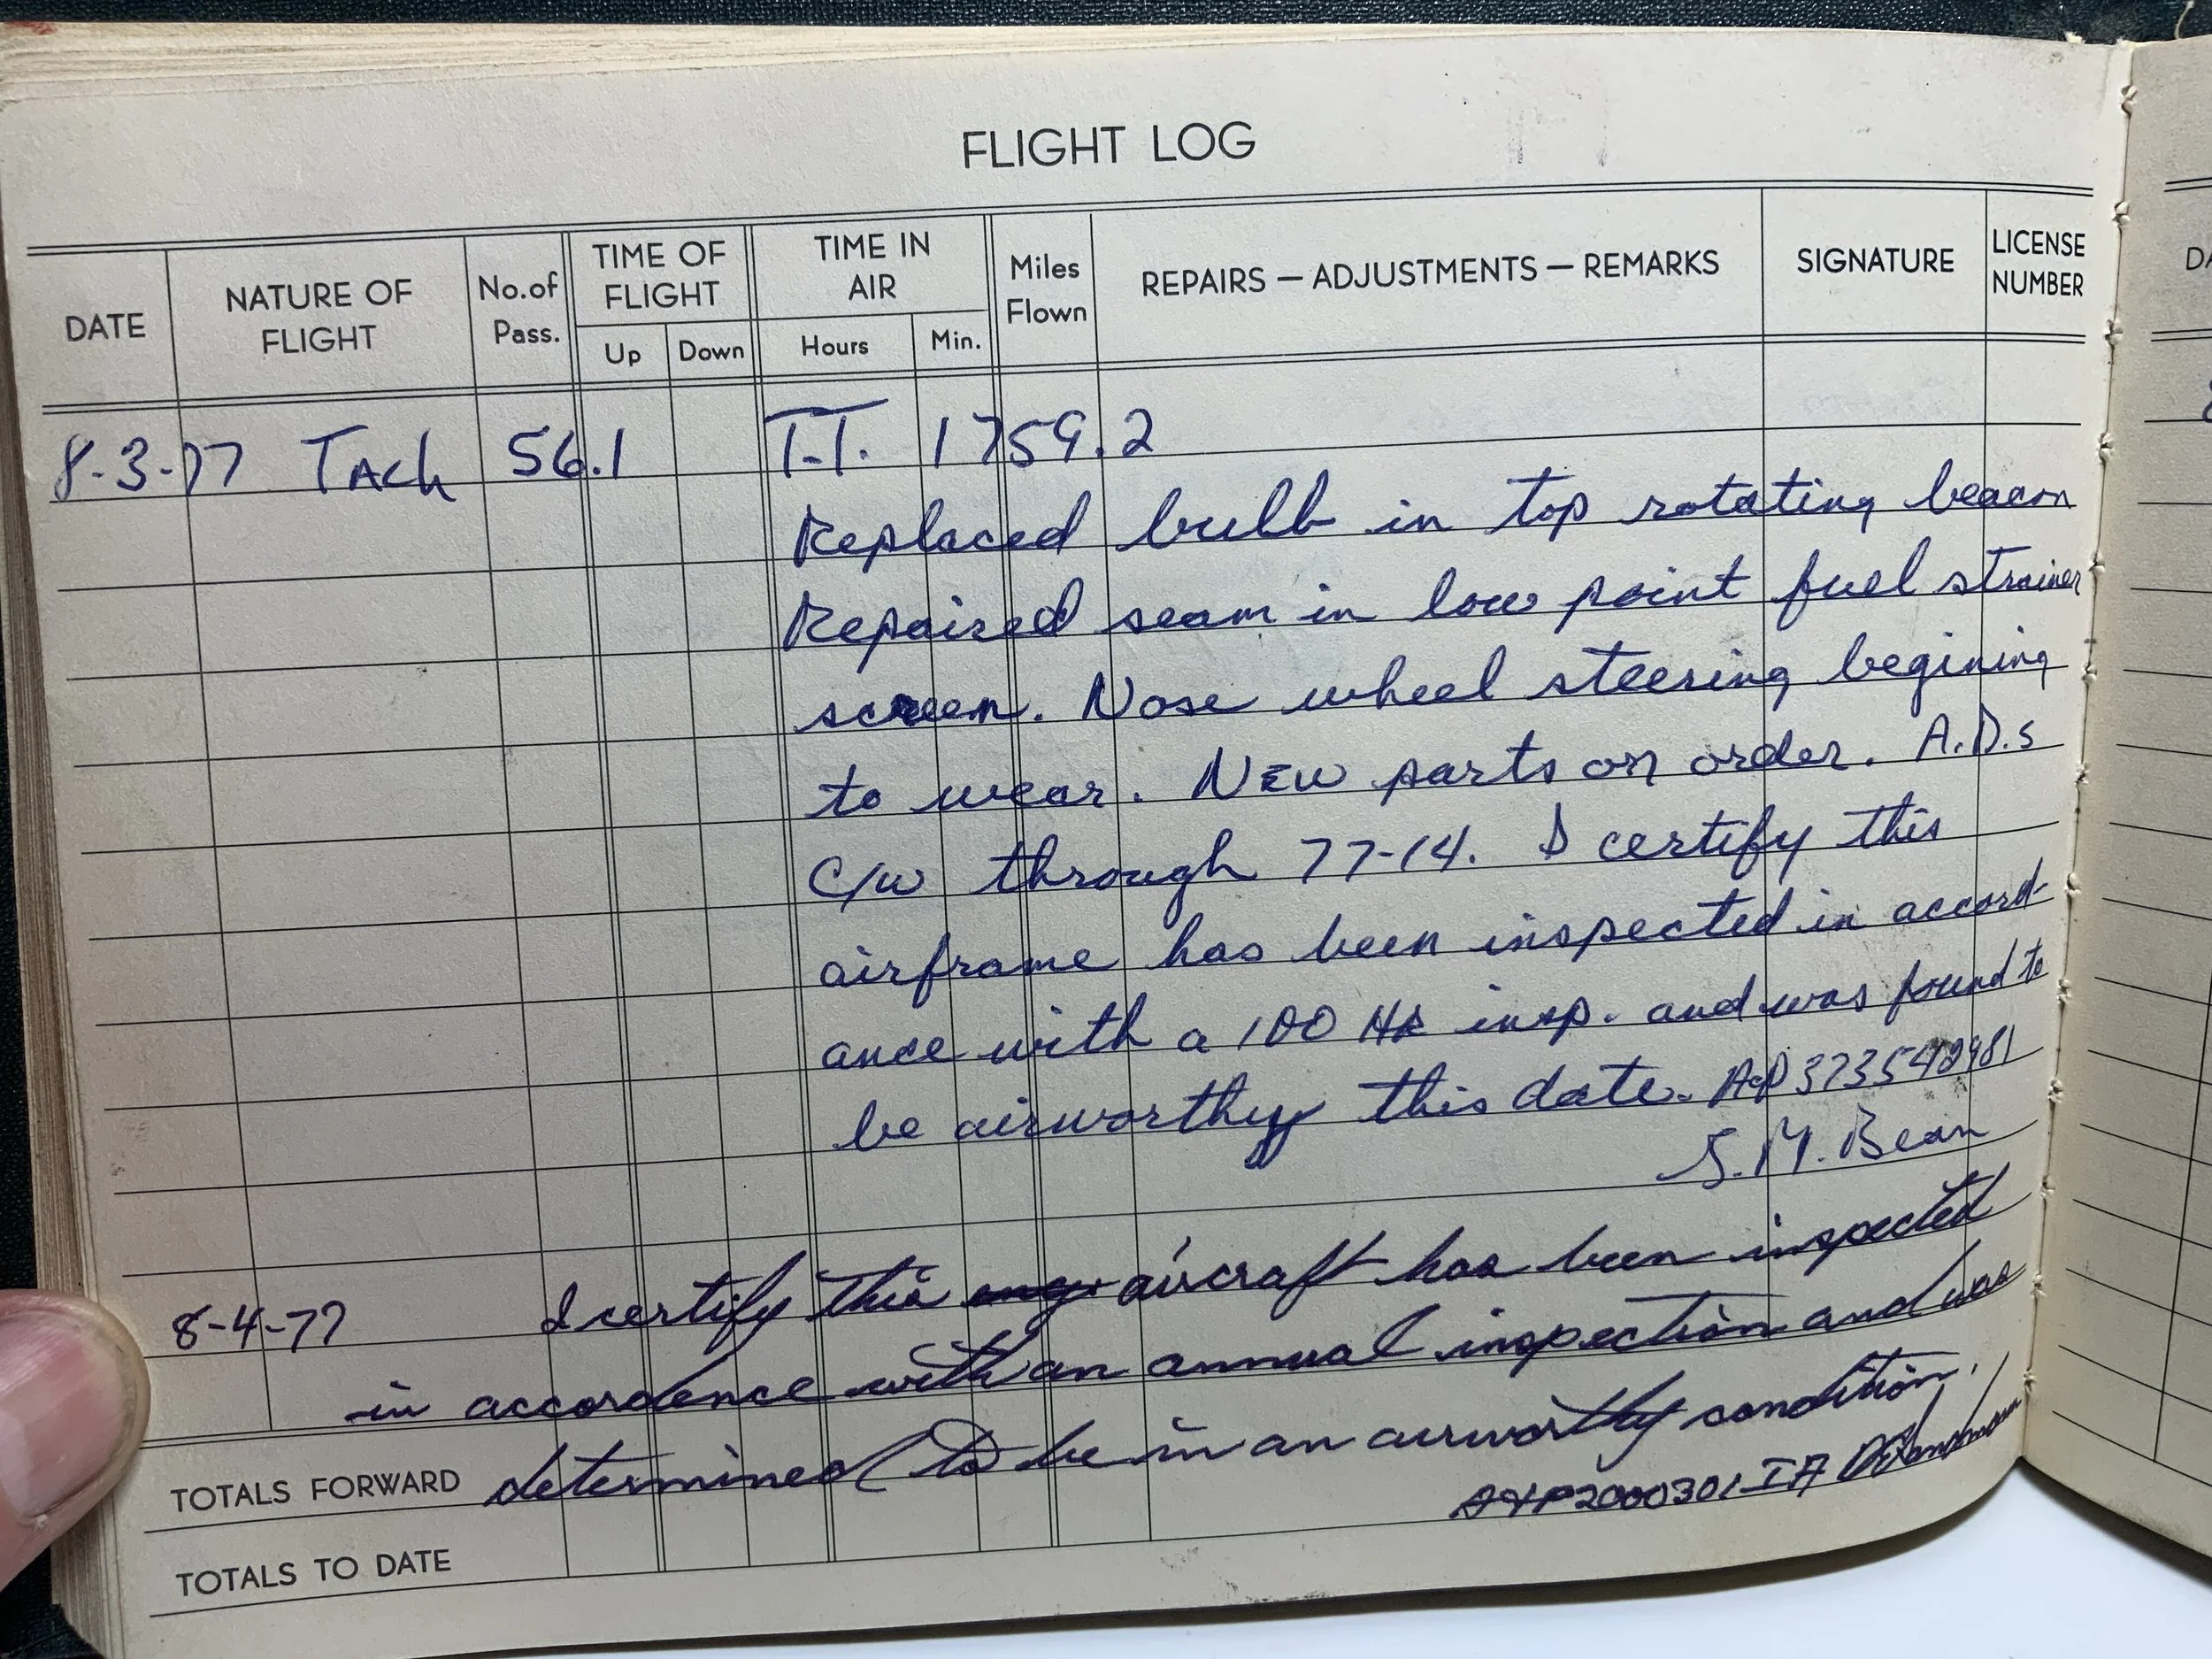 FLIGHT LOG
DATE
NATURE OF FLIGHT
No. of Pass.
TIME OF FLIGHT
Up
Down
TIME IN AIR
Hours
Min.
Miles Flown
REPAIRS — ADJUSTMENTS — REMARKS
SIGNATURE
LICENSE NUMBER
8-3-77 TAch 56.1 T.T. 1759.2
Replaced bulb in top rotating beacon
Repaired seam in low point fuel strainer
screen. Nose wheel steering begining
to wear. NEW parts on order. A.D.s
C/W through 77-14. I certify this
airframe has been inspected in accord-
ance with a 100 HR insp. and was found to
be airworthy this date. A&P 373542981
S. M. Bean
8-4-77 I certify this aircraft has been inspected
in accordence with an annual inspection and was
determined to be in an airworthy condition.
A&P2000301 IA
TOTALS FORWARD
TOTALS TO DATE